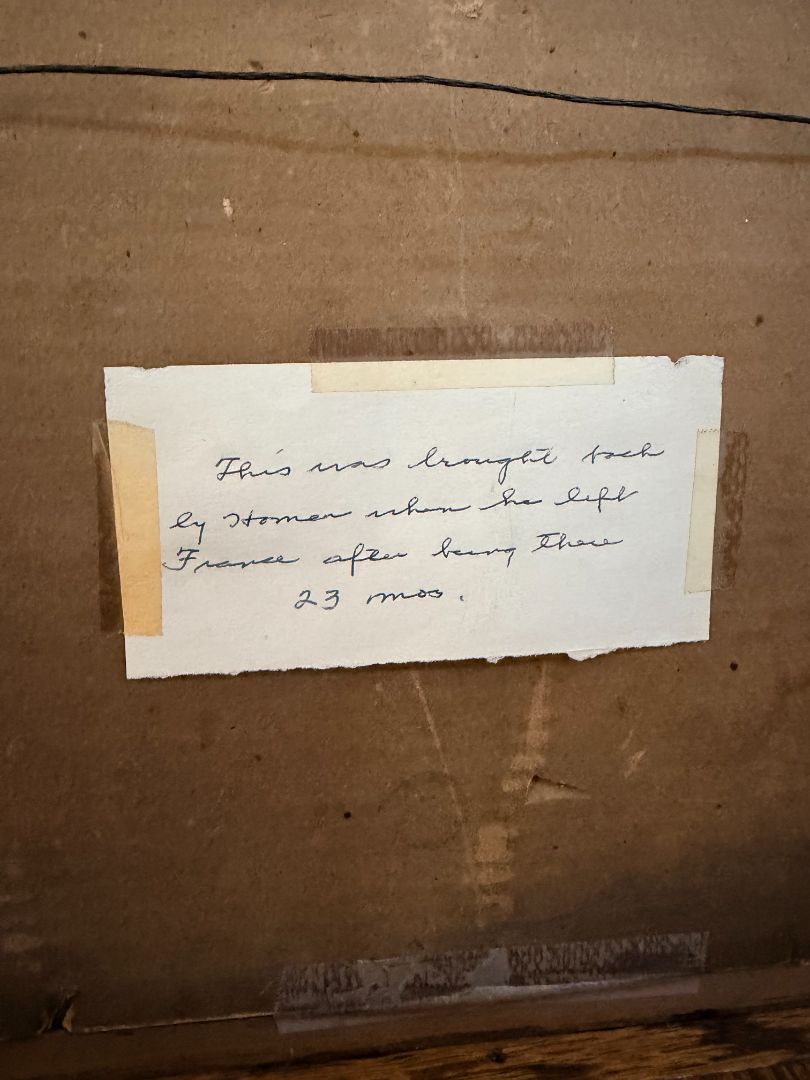 This was brought back
by Homer when he left
France after being there
23 mos.